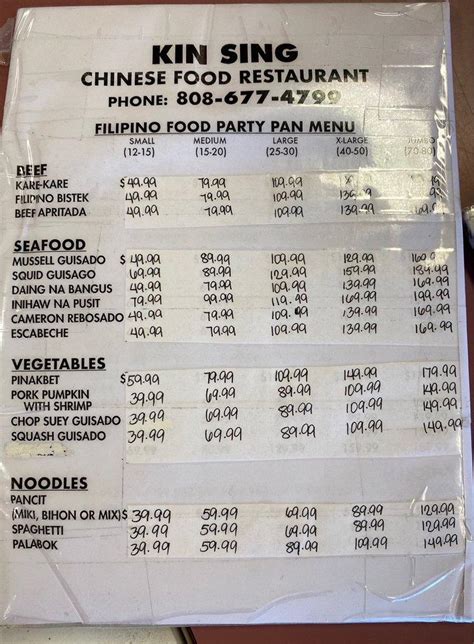 KIN SING
CHINESE FOOD RESTAURANT
PHONE: 808-677-4799
FILIPINO FOOD PARTY PAN MENU
SMALL MEDIUM LARGE X-LARGE JUMBO
(12-15) (15-20) (25-30) (40-50) (70-80)
BEEF
KARE-KARE $49.99 79.99 109.99
FILIPINO BISTEK 49.99 79.99 109.99
BEEF APRITADA 49.99 79.99 109.99 139.99
SEAFOOD
MUSSELL GUISADO $49.99 89.99 109.99 129.99
SQUID GUISAGO 69.99 89.99 129.99 159.99 189.99
DAING NA BANGUS 49.99 79.99 109.99 139.99 169.99
INIHAW NA PUSIT 79.99 99.99 119.99 169.99 199.99
CAMERON REBOSADO 49.99 79.99 109.99 139.99 169.99
ESCABECHE 49.99 79.99 109.99 139.99 169.99
VEGETABLES
PINAKBET $59.99 79.99 109.99 149.99 179.99
PORK PUMPKIN 39.99 69.99 89.99 109.99 149.99
WITH SHRIMP
CHOP SUEY GUISADO 39.99 69.99 89.99 109.99 149.99
SQUASH GUISADO 39.99 69.99 89.99 109.99 149.99
NOODLES
PANCIT
(MIKI, BIHON OR MIX)$ 39.99 59.99 69.99 89.99 129.99
SPAGHETTI 39.99 59.99 69.99 89.99 129.99
PALABOK 39.99 59.99 89.99 109.99 149.99